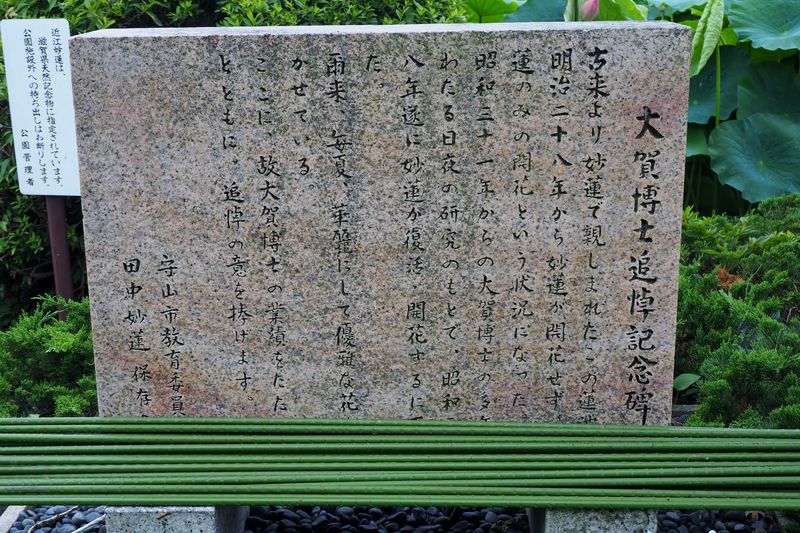 大賀博士追悼記念碑
古来より妙蓮で親しまれたこの蓮
明治二十八年から妙蓮が開花せず
蓮のみの開花という状況になった
昭和三十一年からの大賀博士の多年
わたる日夜の研究のもとで、昭和
八年遂に妙蓮が復活・開花するに
た。
爾来、毎夏、華麗にして優雅な花
かせている。
ここに、故大賀博士の業績をたた
とともに、追悼の意を捧げます。
守山市教育委員
田中妙蓮保存
近江妙蓮は、
滋賀県天然記念物に指定されています。
公園施設外への持ち出しはお断りします。
公園管理者